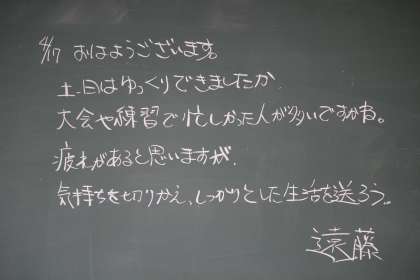 4/17 おはようございます。
土、日はゆっくりできましたか。
大会や練習で忙しかった人が多いですかね。
疲れがあると思いますが、
気持ちを切りかえ、しっかりとした生活を送ろう。
遠藤